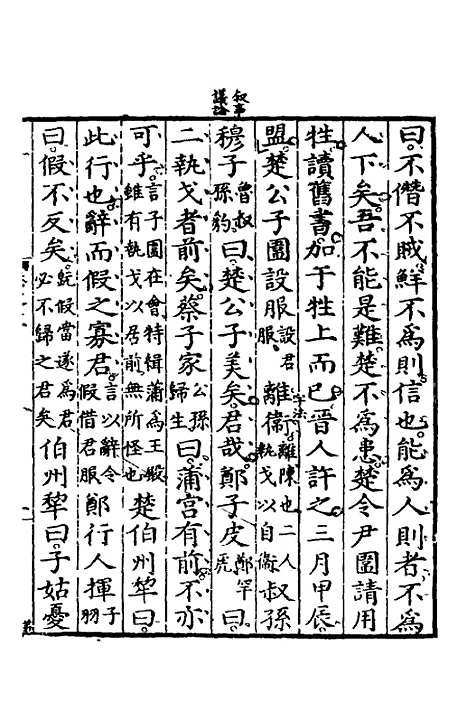 叙事
議論
曰不僭不賊鮮不為則信也能為人則者不為
人下矣吾不能是難楚不為患楚令尹圍請用
牲讀舊書加于牲上而已晉人許之三月甲辰
盟楚公子圍設服設君服離衛離陳也二人執戈以自衛叔孫
字法
穆子魯叔孫豹曰楚公子美矣君哉鄭子皮鄭罕虎曰
二執戈者前矣蔡子家公孫歸生曰蒲宫有前不亦
可乎言子圍在會特緝蒲為王殿雖有執戈以居前無所怪也楚伯州犂曰
此行也辭而假之寡君言以辭令假借君服鄭行人揮子羽
曰假不反矣既假當遂為君必不歸之君矣伯州犂曰子姑憂